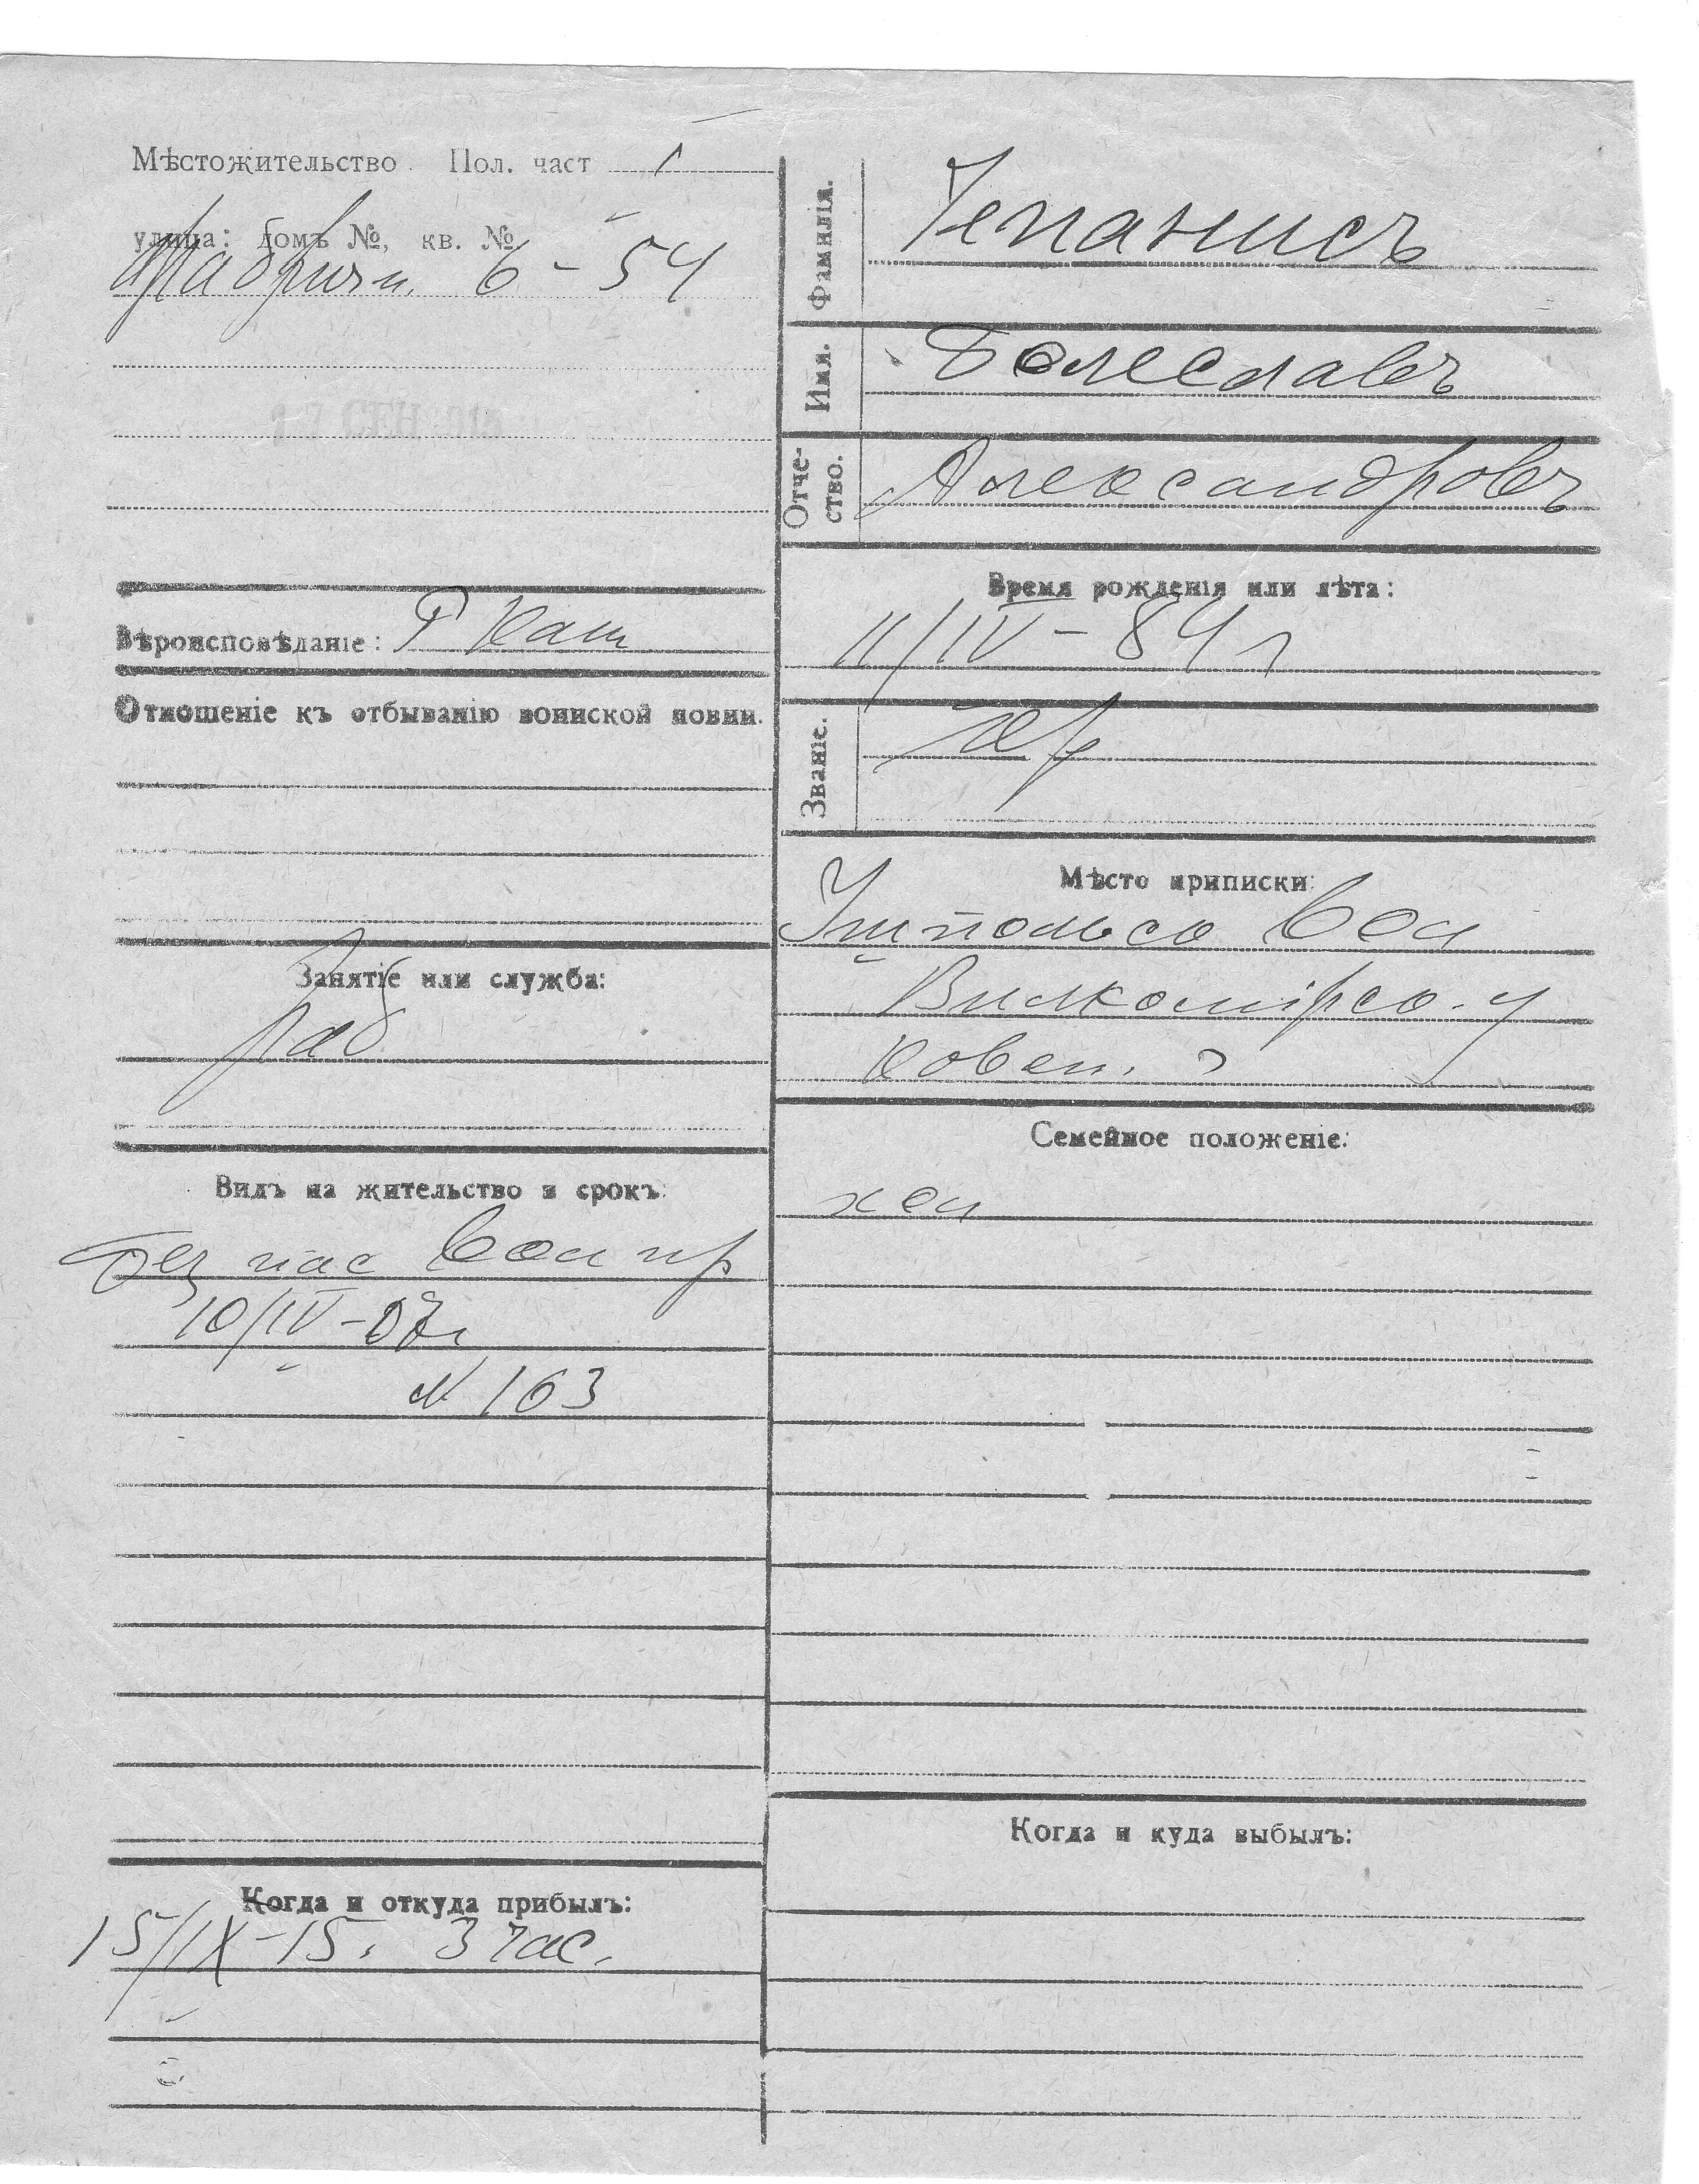 Мѣстожительство. Пол. част 1
улица: домъ №, кв. №
Фабричн. 6 - 54
СЕН 1915
Вѣроисповѣданіе: Р Кат
Отношеніе къ отбыванію воинской повин.
Занятіе или служба:
Раб
Видъ на жительство и срокъ:
Без пас вол пр
10/IV-07 г
№ 163
Когда и откуда прибылъ:
15/IX-15. 3 час.
Фамилія. Чепанисъ
Имя. Болеславъ
Отчество. Александровъ
Время рожденія или лѣта:
11/IV - 84 г
Званіе. Кр
Мѣсто приписки:
Ушпольск вол
Вилкомірск. у
Ковен. г
Семейное положеніе:
хол
Когда и куда выбылъ: